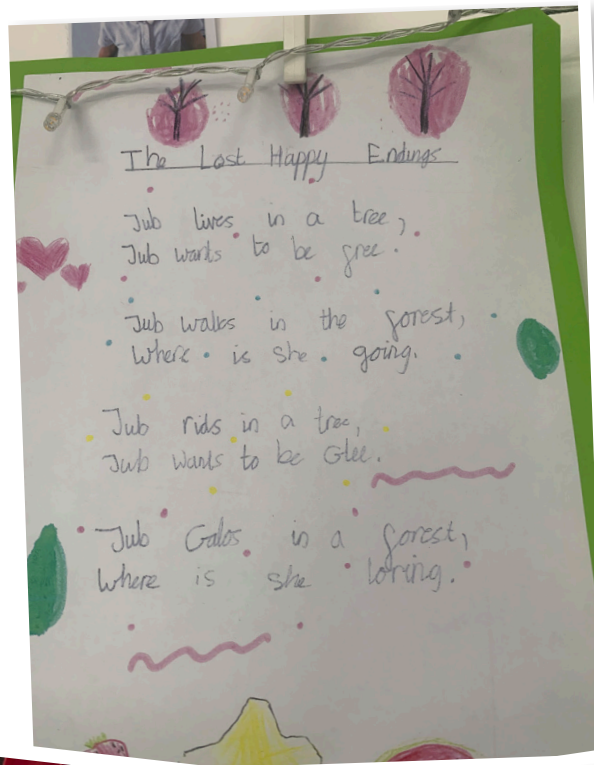 The Lost Happy Endings
Jub lives in a tree,
Jub wants to be free.
Jub walks in the forest,
Where is she going.
Jub rids in a tree,
Jub wants to be Glee.
Jub Galos in a forest,
Where is she loring.